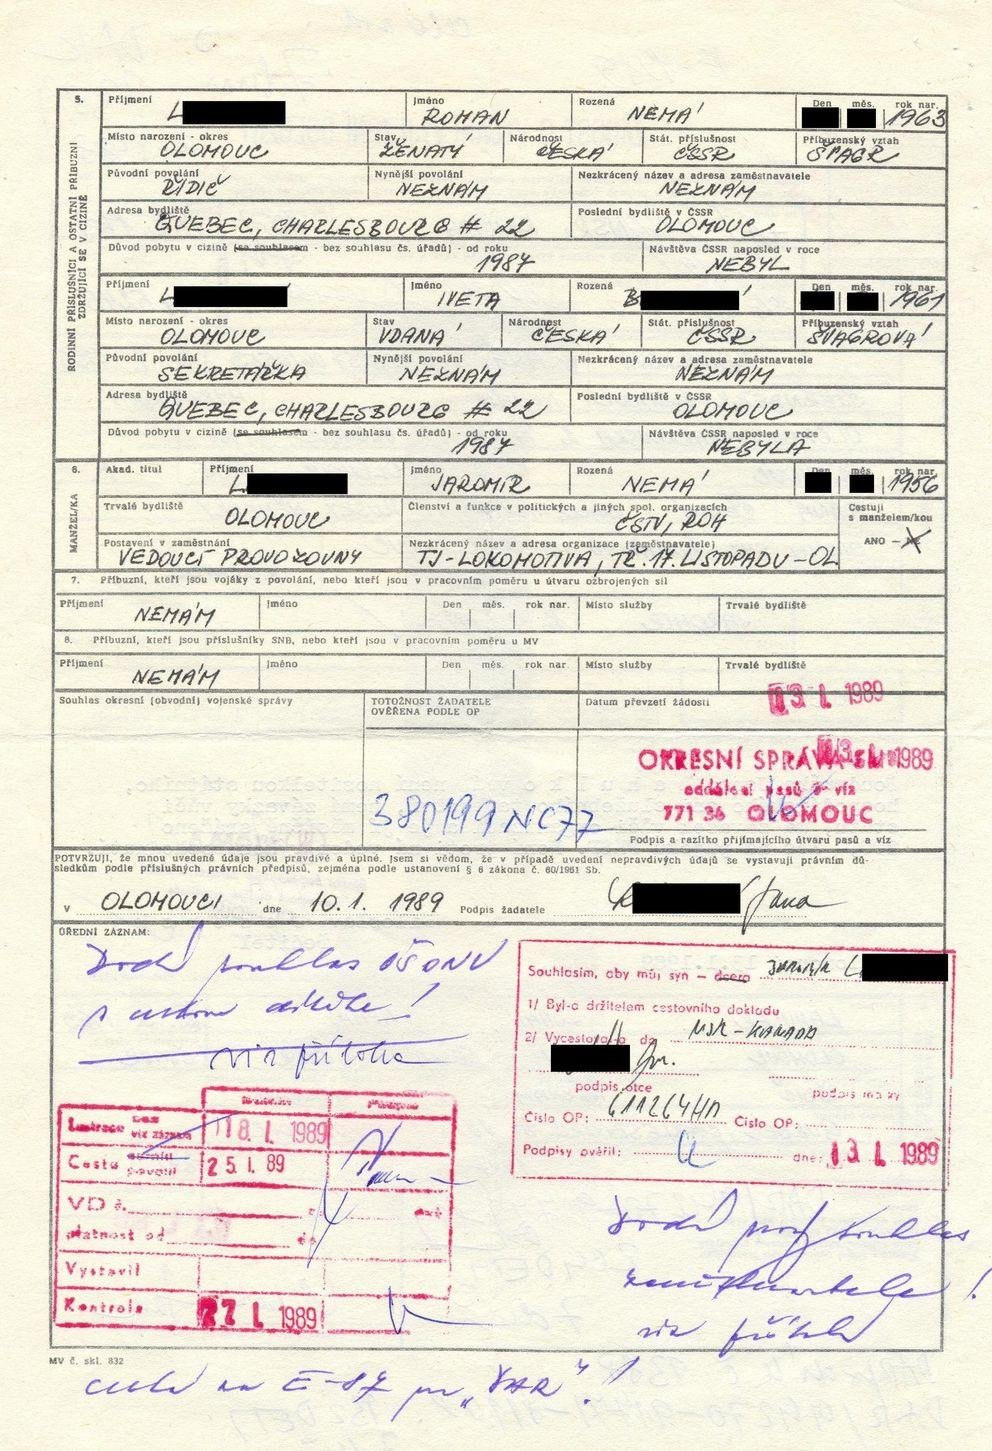 5. Příjmení Jméno Rozená Den měs. rok nar.
L ROMAN NEMÁ 1963
Místo narození - okres Stav Národnost Stát. příslušnost Příbuzenský vztah
OLOMOUC ŽENATÝ ČESKÁ ČSSR ŠVAGR
Původní povolání Nynější povolání Nezkrácený název a adresa zaměstnavatele
ŘIDIČ NEZNÁM NEZNÁM
Adresa bydliště Poslední bydliště v ČSSR
QUEBEC, CHARLESBOURG # 22 OLOMOUC
Důvod pobytu v cizině (se souhlasem - bez souhlasu čs. úřadů) - od roku Návštěva ČSSR naposled v roce
1987 NEBYL
RODINNÍ PŘÍSLUŠNÍCI A OSTATNÍ PŘÍBUZNÍ
ZDRŽUJÍCÍ SE V CIZINĚ
Příjmení Jméno Rozená Den měs. rok nar.
L IVETA B 1961
Místo narození - okres Stav Národnost Stát. příslušnost Příbuzenský vztah
OLOMOUC VDANÁ ČESKÁ ČSSR ŠVAGROVÁ
Původní povolání Nynější povolání Nezkrácený název a adresa zaměstnavatele
SEKRETÁŘKA NEZNÁM NEZNÁM
Adresa bydliště Poslední bydliště v ČSSR
QUEBEC, CHARLESBOURG # 22 OLOMOUC
Důvod pobytu v cizině (se souhlasem - bez souhlasu čs. úřadů) - od roku Návštěva ČSSR naposled v roce
1987 NEBYLA
6. Akad. titul Příjmení Jméno Rozená Den měs. rok nar.
L JAROMÍR NEMÁ 1956
MANŽEL/KA
Trvalé bydliště Členství a funkce v politických a jiných spol. organizacích Cestuji
s manželem/kou
OLOMOUC ČSTV, ROH
ANO - NE
Postavení v zaměstnání Nezkrácený název a adresa organizace (zaměstnavatele)
VEDOUCÍ PROVOZOVNY TJ-LOKOMOTIVA, TŘ. 17. LISTOPADU - OL
7. Příbuzní, kteří jsou vojáky z povolání, nebo kteří jsou v pracovním poměru u útvaru ozbrojených sil
Příjmení Jméno Den měs. rok nar. Místo služby Trvalé bydliště
NEMÁM
8. Příbuzní, kteří jsou příslušníky SNB, nebo kteří jsou v pracovním poměru u MV
Příjmení Jméno Den měs. rok nar. Místo služby Trvalé bydliště
NEMÁM
Souhlas okresní (obvodní) vojenské správy TOTOŽNOST ŽADATELE Datum převzetí žádosti
OVĚŘENA PODLE OP
13. I. 1989
OKRESNÍ SPRÁVA 1989
oddělení pasů a víz
771 36 OLOMOUC
380199 NC77
Podpis a razítko přijímajícího útvaru pasů a víz
POTVRZUJI, že mnou uvedené údaje jsou pravdivé a úplné. Jsem si vědom, že v případě uvedení nepravdivých údajů se vystavuji právním dů-
sledkům podle příslušných právních předpisů, zejména podle ustanovení § 6 zákona č. 60/1961 Sb.
v OLOMOUCI dne 10.1. 1989 Podpis žadatele Jana
ÚŘEDNÍ ZÁZNAM:
Dodá souhlas OŠONV
viz příloha
Souhlasím, aby můj syn - dcera Jaromír L
1/ Byl-a držitelem cestovního dokladu
2/ Vycestoval-a do NSR - KANADA
podpis otce podpis matky
Číslo OP: 611264 Číslo OP:
Podpisy ověřil: dne: 13. I. 1989
Lustrace viz záznam 18. I. 1989
Cestu povolil 25. I. 89
VD č.
platnost od do
Vystavil
Kontrola 27. I. 1989
Dodá souhlas
zaměstnavatele!
viz příloha
MV č. skl. 832